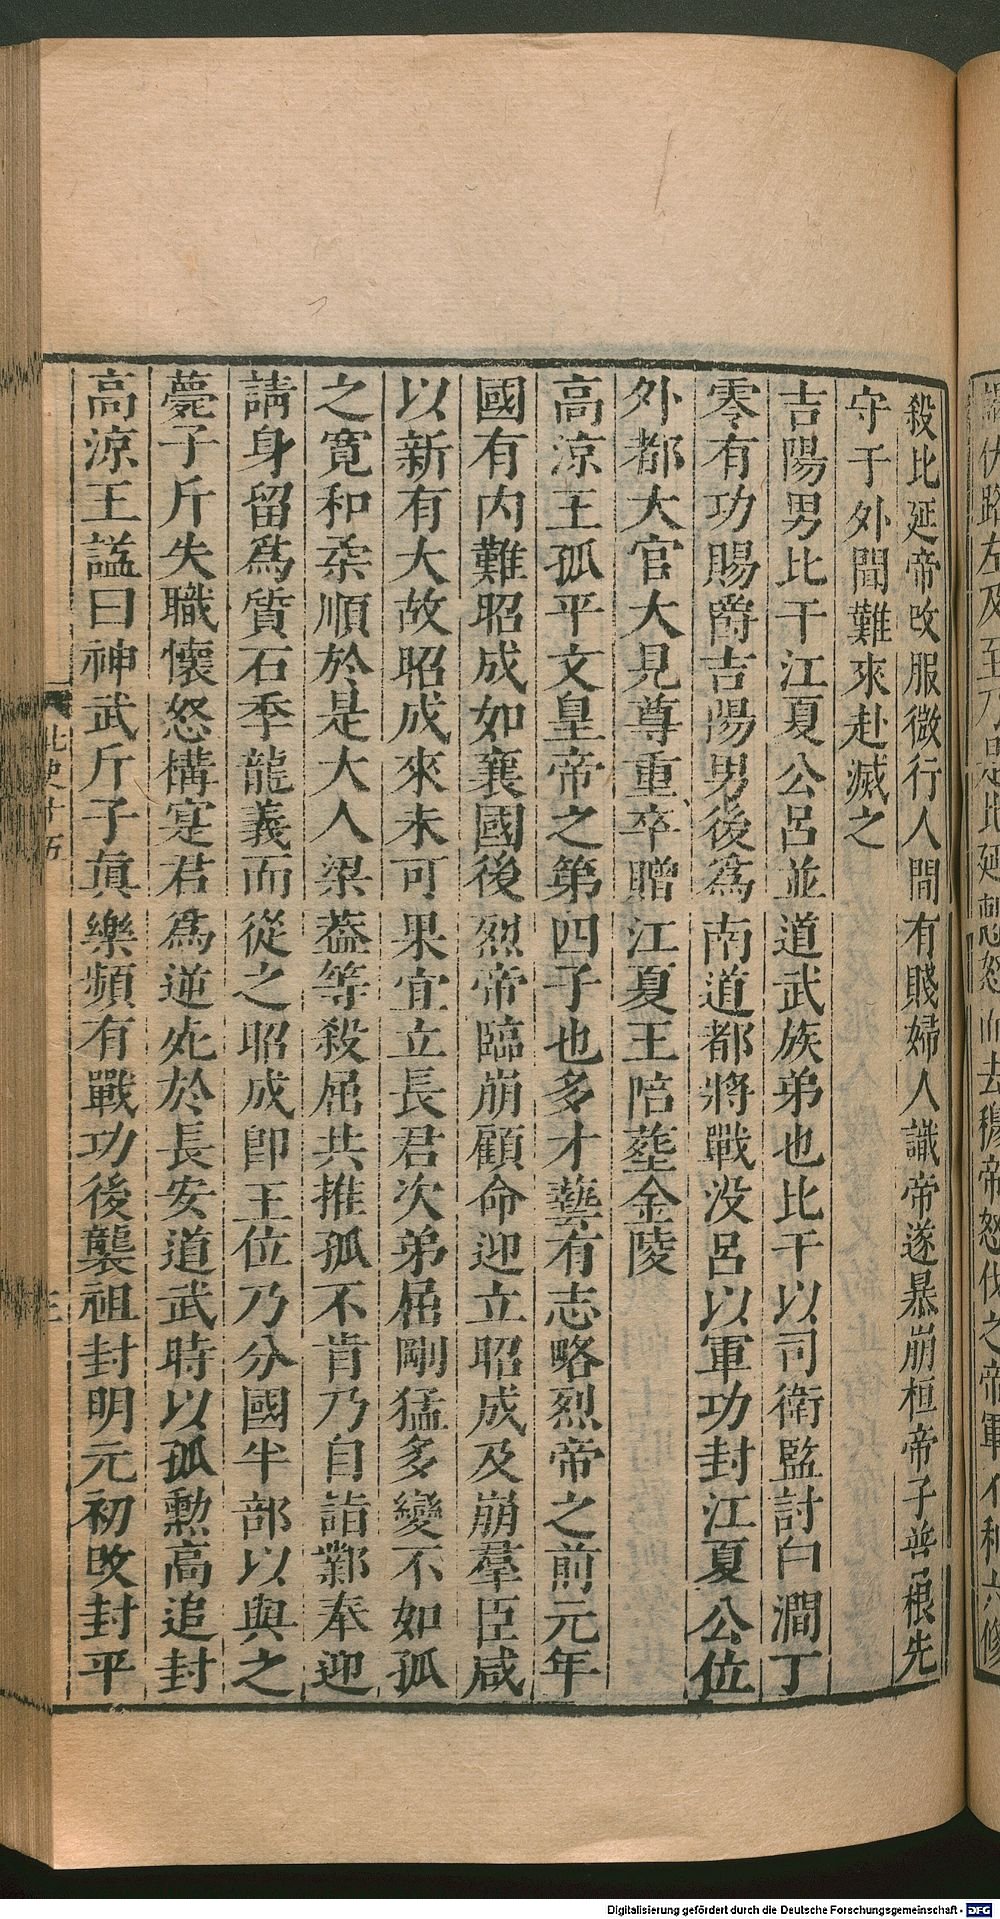 殺比延帝改服微行人間有賤婦人識帝遂暴崩桓帝子普根先
守于外聞難來赴滅之
吉陽男比干江夏公呂並道武族弟也比干以司衛監討白澗丁
零有功賜爵吉陽男後爲南道都將戰没呂以軍功封江夏公位
外都大官大見尊重卒贈江夏王陪塟金陵
高涼王孤平文皇帝之第四子也多才藝有志略烈帝之前元年
國有内難昭成如襄國後烈帝臨崩顧命迎立昭成及崩羣臣咸
以新有大故昭成來未可果宜立長君次弟屈剛猛多變不如孤
之寛和柔順於是大人梁葢等殺屈共推孤不肯乃自詣鄴奉迎
請身留爲質石季龍義而從之昭成卽王位乃分國半部以與之
薨子斤失職懷怒構寔君爲逆死於長安道武時以孤勲高追封
高涼王諡曰神武斤子真樂頻有戰功後襲祖封明元初改封平
北史十五
三
Digitalisierung gefördert durch die Deutsche Forschungsgemeinschaft - DFG